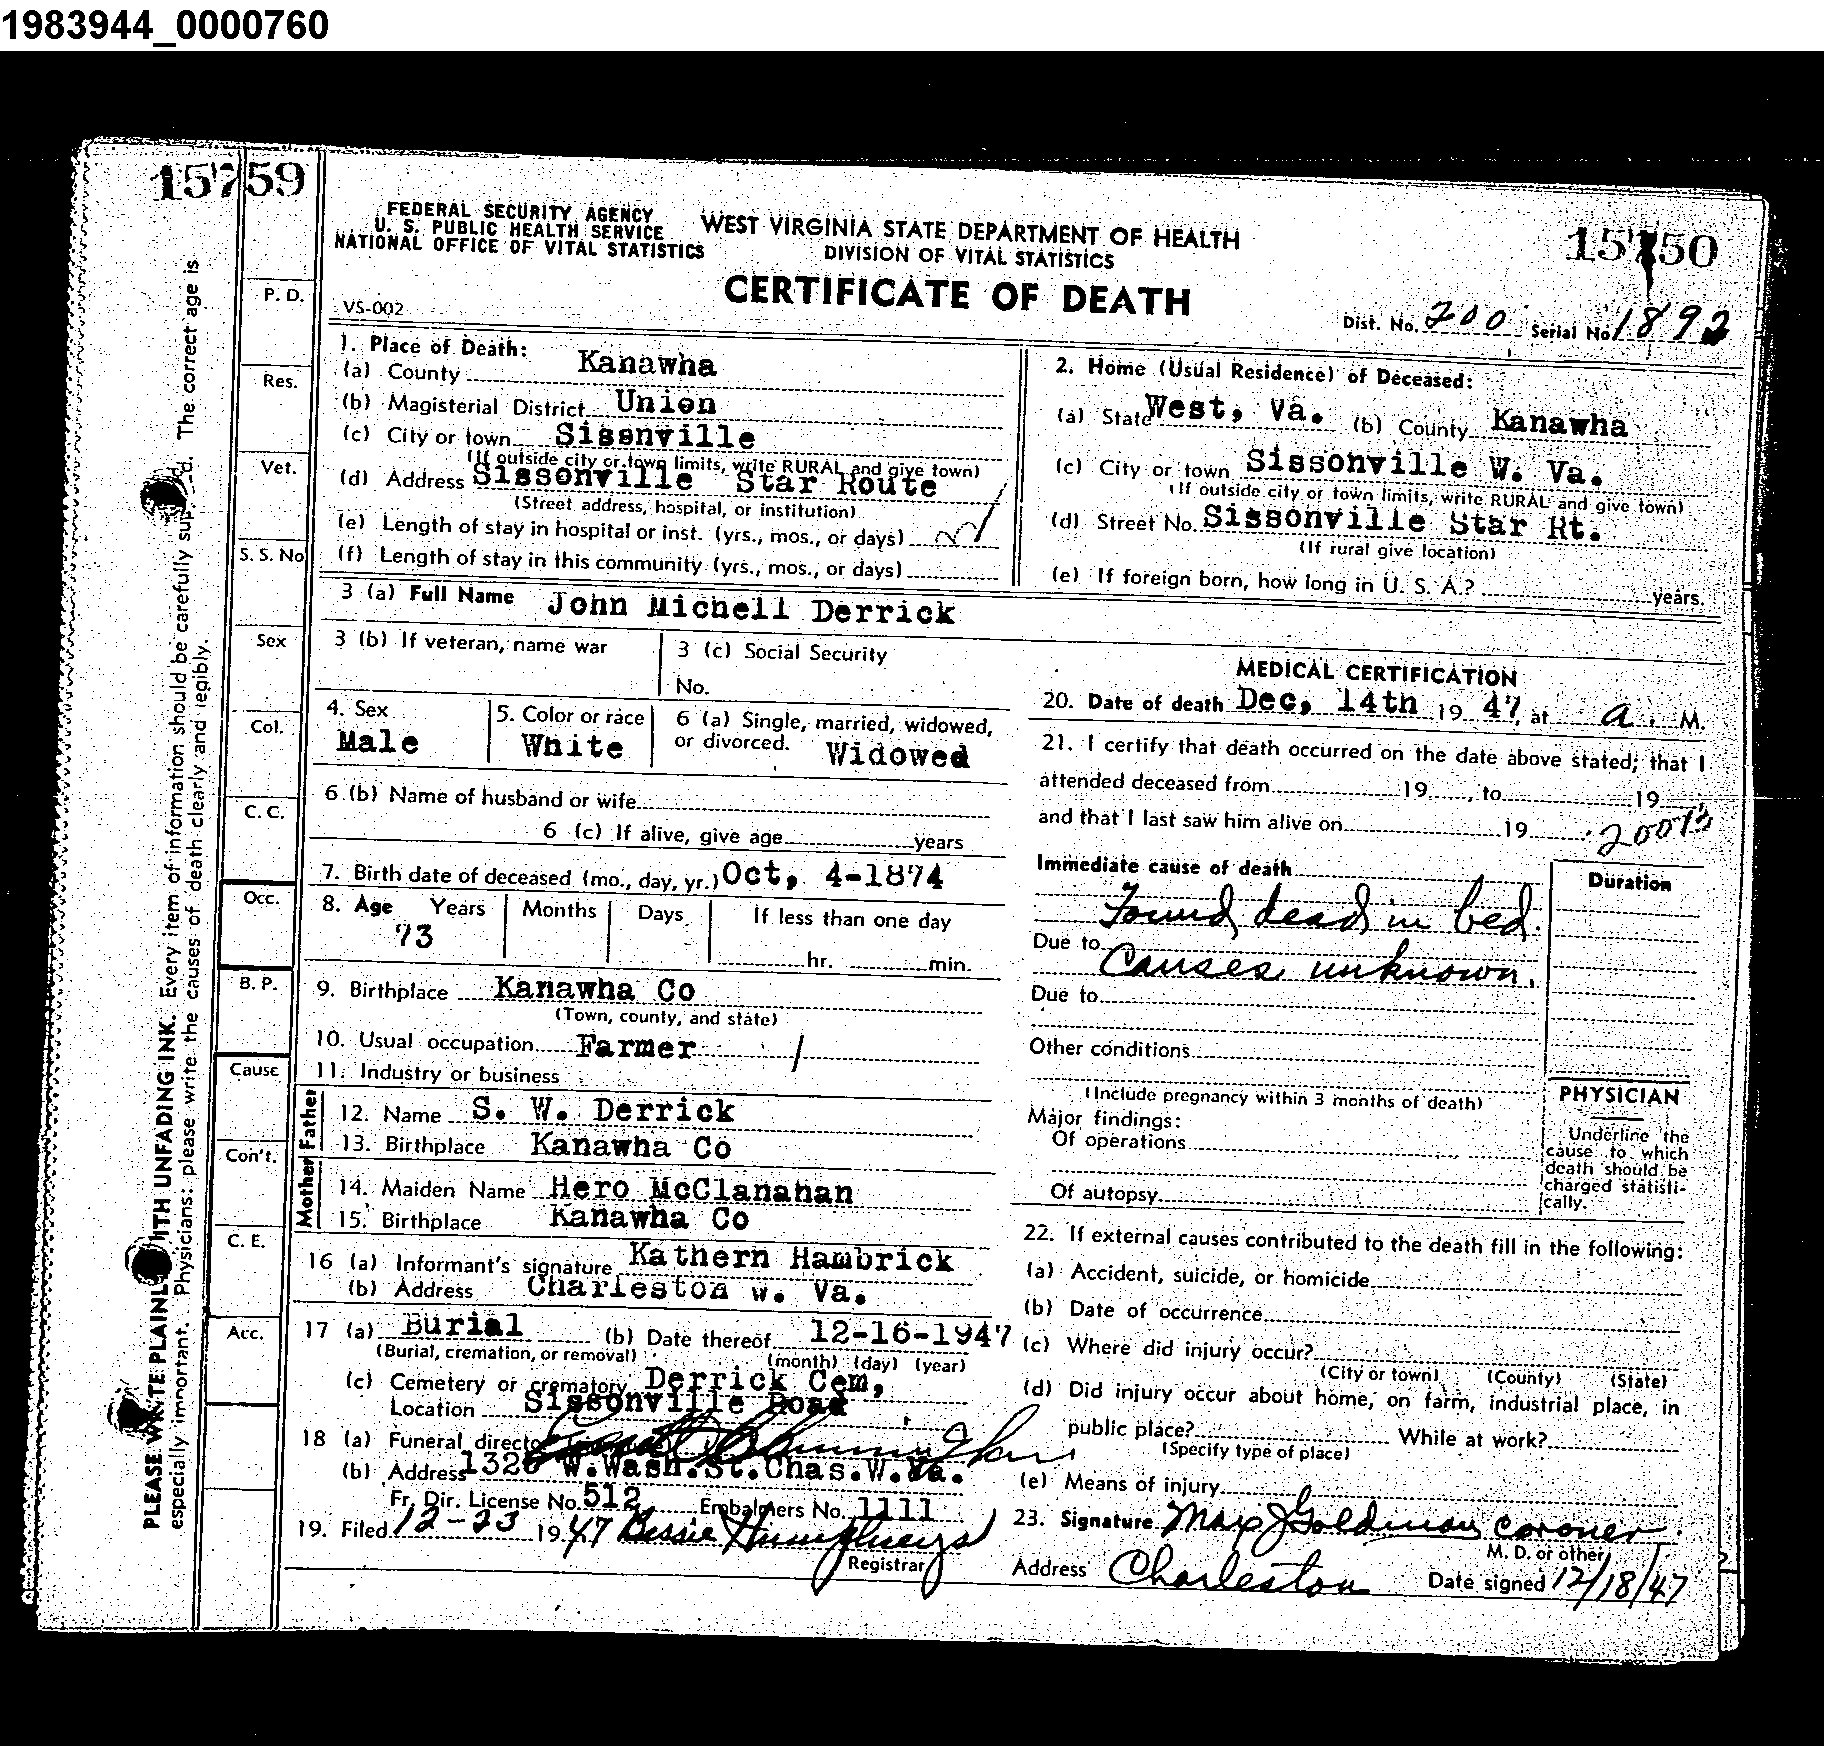 1983944_0000760
15759
FEDERAL SECURITY AGENCY
U. S. PUBLIC HEALTH SERVICE
NATIONAL OFFICE OF VITAL STATISTICS
WEST VIRGINIA STATE DEPARTMENT OF HEALTH
DIVISION OF VITAL STATISTICS
15750
CERTIFICATE OF DEATH
VS-002
Dist. No. 200 Serial No. 1892
PLEASE WRITE PLAINLY WITH UNFADING INK. Every item of information should be carefully The correct age is
especially important. Physicians: please write the causes of death clearly and legibly.
P. D.
Res.
Vet.
S. S. No
Sex
Col.
C. C.
Occ.
B. P.
Cause
Con't.
C. E.
Acc.
1. Place of Death:
(a) County Kanawha
(b) Magisterial District Union
(c) City or town Sissnville
(If outside city or town limits, write RURAL and give town)
(d) Address Sissonville Star Route
(Street address, hospital, or institution)
(e) Length of stay in hospital or inst. (yrs., mos., or days)
(f) Length of stay in this community (yrs., mos., or days)
2. Home (Usual Residence) of Deceased:
(a) State West, Va. (b) County Kanawha
(c) City or town Sissonville W. Va.
(If outside city or town limits, write RURAL and give town)
(d) Street No. Sissonville Star Rt.
(If rural give location)
(e) If foreign born, how long in U. S. A.? years.
3 (a) Full Name John Michell Derrick
3 (b) If veteran, name war
3 (c) Social Security
No.
4. Sex
Male
5. Color or race
White
6 (a) Single, married, widowed,
or divorced. Widowed
6 (b) Name of husband or wife
6 (c) If alive, give age years
7. Birth date of deceased (mo., day, yr.) Oct, 4-1874
8. Age Years Months Days If less than one day
73
hr. min.
9. Birthplace Kanawha Co
(Town, county, and state)
10. Usual occupation Farmer /
11. Industry or business
Father
12. Name S. W. Derrick
13. Birthplace Kanawha Co
Mother
14. Maiden Name Hero McClanahan
15. Birthplace Kanawha Co
16 (a) Informant's signature Kathern Hambrick
(b) Address Charleston W. Va.
17 (a) Burial (b) Date thereof 12-16-1947
(Burial, cremation, or removal) (month) (day) (year)
(c) Cemetery or crematory Derrick Cem,
Location Sissonville Road
18 (a) Funeral director
(b) Address 1326 W.Wash.St.Chas.W.Va.
Fr. Dir. License No. 512 Embalmers No. 1111
19. Filed 12-23 1947 Bessie Humphreys
Registrar
MEDICAL CERTIFICATION
20. Date of death Dec, 14th 19 47, at a. M.
21. I certify that death occurred on the date above stated; that I
attended deceased from 19 , to 19
and that I last saw him alive on 19
Immediate cause of death
Found dead in bed.
Due to
Causes unknown.
Due to
Other conditions
(Include pregnancy within 3 months of death)
Major findings:
Of operations
Of autopsy
Duration
PHYSICIAN
Underline the
cause to which
death should be
charged statisti-
cally.
22. If external causes contributed to the death fill in the following:
(a) Accident, suicide, or homicide
(b) Date of occurrence
(c) Where did injury occur?
(City or town) (County) (State)
(d) Did injury occur about home, on farm, industrial place, in
public place? While at work?
(Specify type of place)
(e) Means of injury
23. Signature Max J Goldman coroner
M. D. or other
Address Charleston Date signed 12/18/47